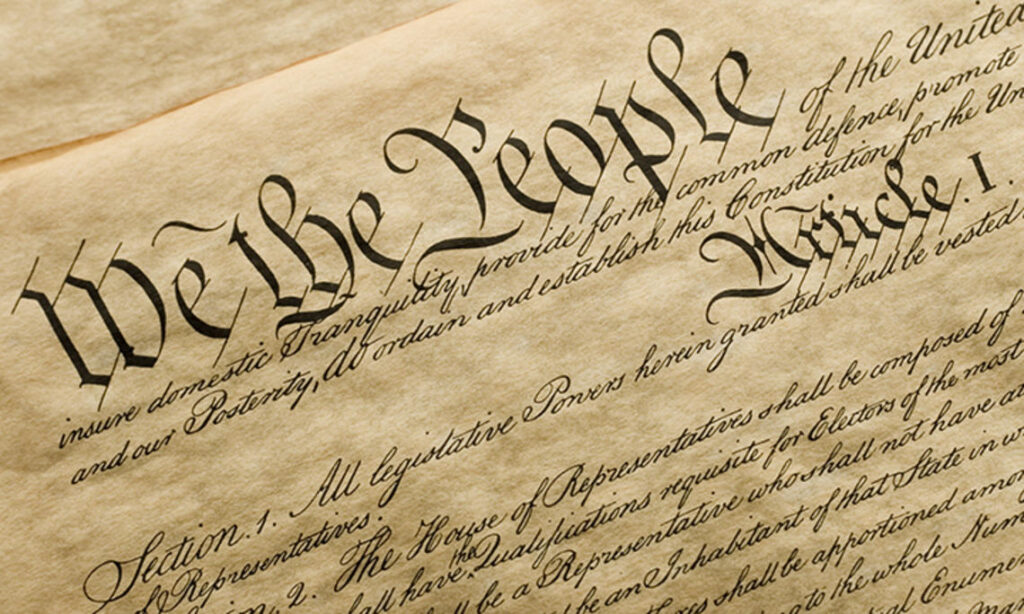 We the People of the United
insure domestic Tranquility, provide for the common defence, promote
and our Posterity, do ordain and establish this Constitution for the Un
Article. I.
Section. 1. All legislative Powers herein granted shall be vested
of Representatives.
ion. 2. The House of Representatives shall be composed of
all have the Qualifications requisite for Electors of the most
ll be a Representative who shall not have at
be an Inhabitant of that State in w
shall be apportioned amon
to the whole Num
Enumer